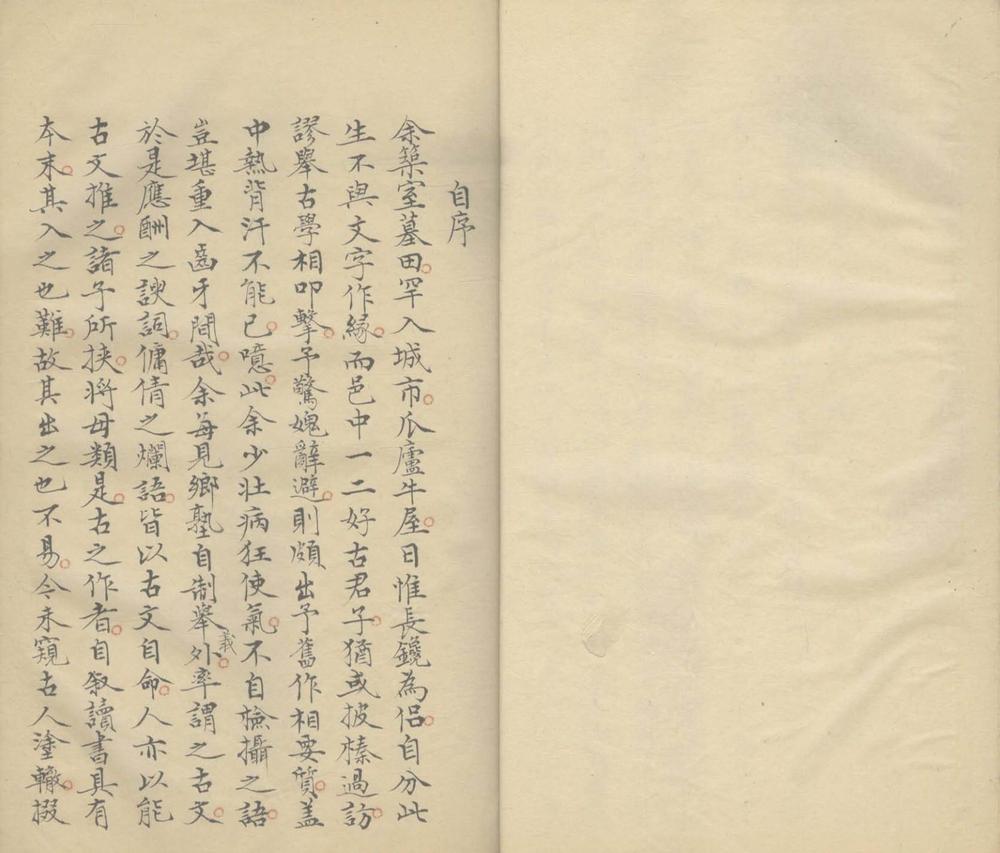 自序
余築室墓田罕入城市瓜廬牛屋日惟長鑱為侶自分此
生不與文字作緣而邑中一二好古君子猶或披榛過訪
謬舉古學相叩擊予驚媿辭避則頗出予舊作相要質蓋
中熱背汗不能已噫此余少壯病狂使氣不自檢攝之語
豈堪重入齒牙間哉余每見鄉塾自制舉義外率謂之古文
於是應酬之諛詞傭倩之爛語皆以古文自命人亦以能
古文推之諸子所挾將毋類是古之作者自叙讀書具有
本末其入之也難故其出之也不易今未窺古人塗轍掇